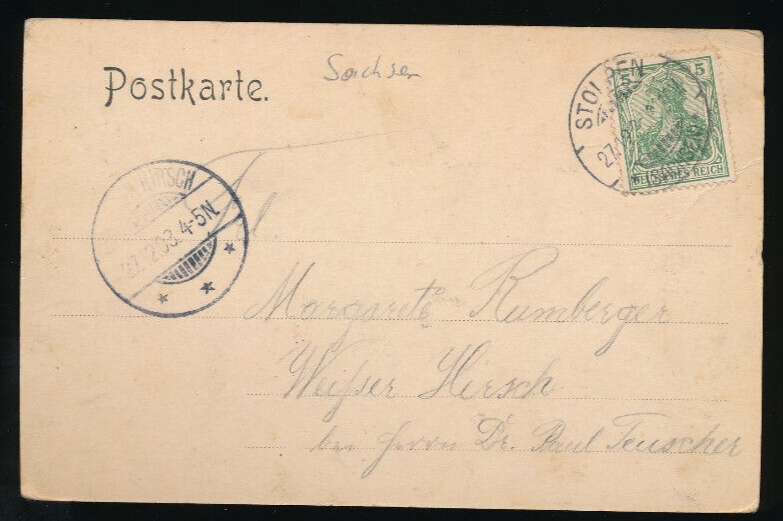 Postkarte.
Sachsen
STOLPEN
27.12
5 5
DEUTSCHES REICH
HIRSCH
27.12.03. 4-5N.
Frl.
Margarete Rumberger
Weißer Hirsch
bei Herrn Dr. Paul Teuscher